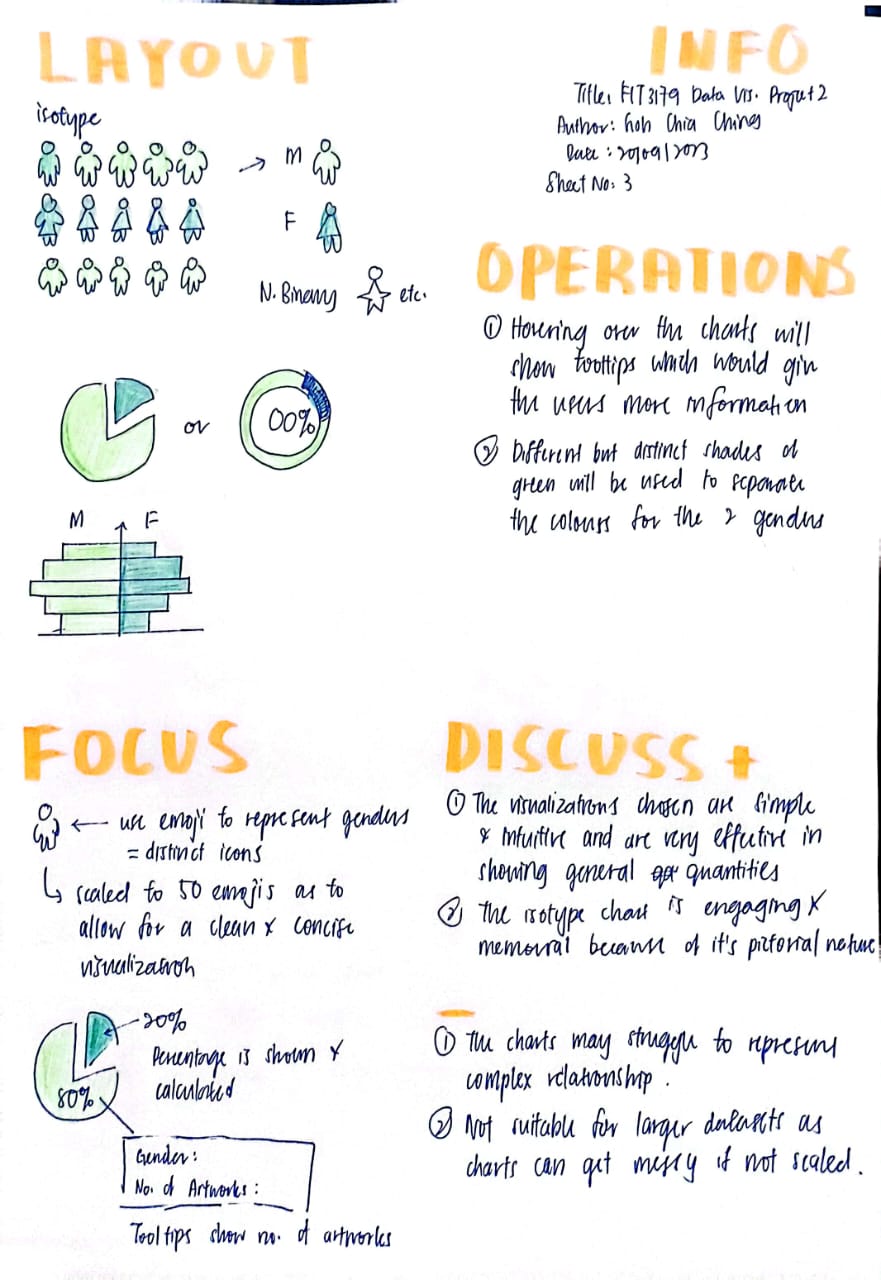 LAYOUT
isotype
M
F
N. Binary etc.
or
00%
M F
INFO
Title: FIT3179 Data Vis. Project 2
Author: Goh Chia Ching
Date: 20/09/2023
Sheet No: 3
OPERATIONS
① Hovering over the charts will
show tooltips which would give
the users more information
② Different but distinct shades of
green will be used to separate
the colours for the 2 genders
FOCUS
← use emoji to represent genders
= distinct icons
↳ scaled to 50 emojis as to
allow for a clean & concise
visualization
20%
80%
Percentage is shown &
calculated
Gender:
No. of Artworks:
Tooltips show no. of artworks
DISCUSS +
① The visualizations chosen are simple
& intuitive and are very effective in
showing general quantities
② The isotype chart is engaging &
memoral because of it's pictorial nature
–
① The charts may struggle to represent
complex relationship.
② Not suitable for larger datasets as
charts can get messy if not scaled.